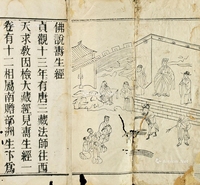 佛說壽生經
貞觀十三年有唐三藏法師徃西
天求教因檢大藏經見壽生經一
卷有十二相屬南贍部洲生下爲